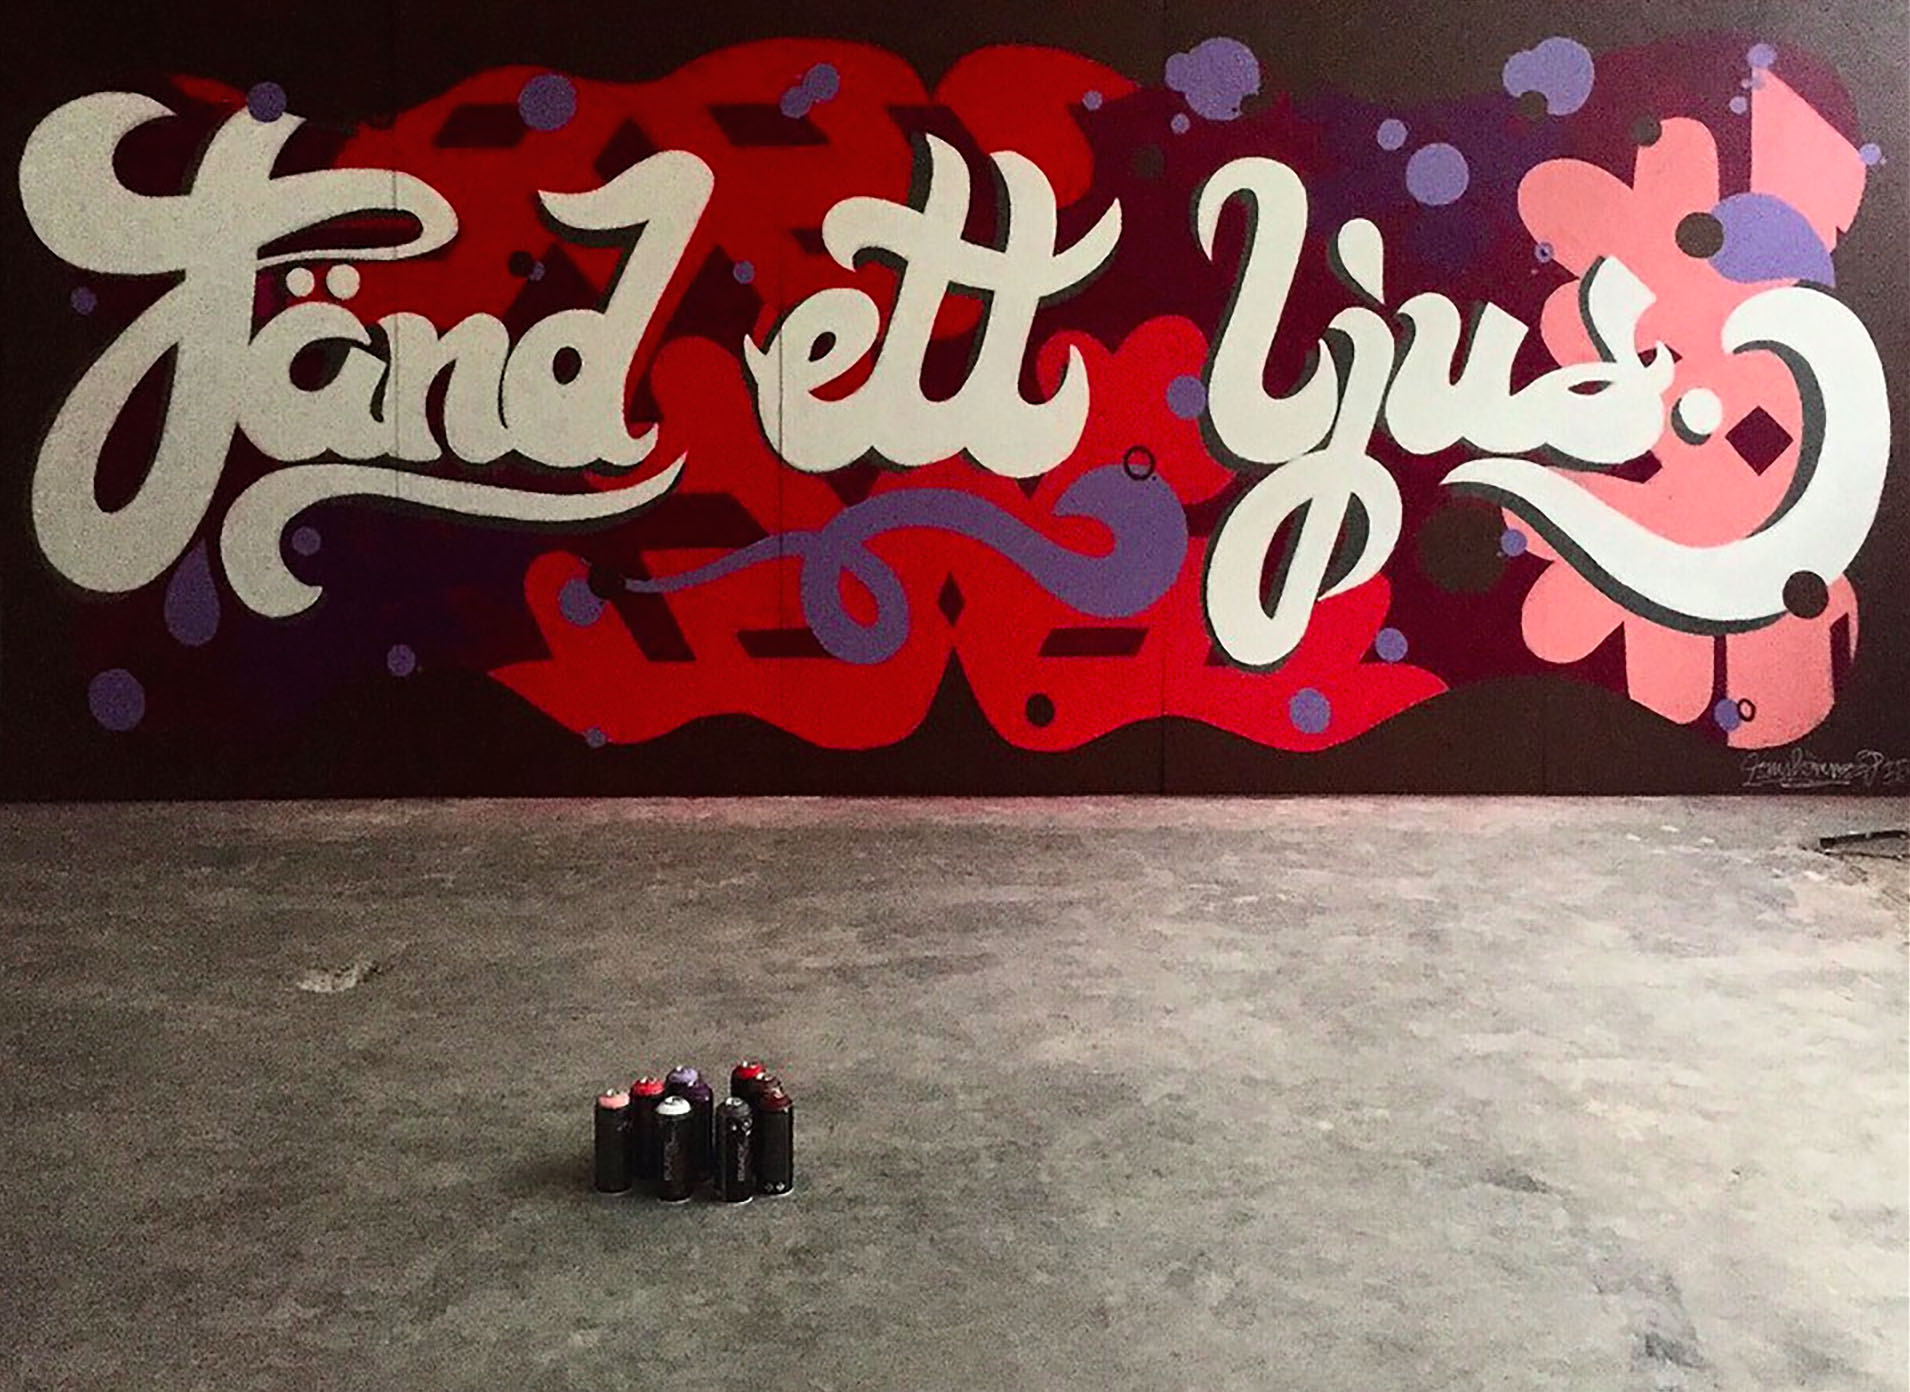 Tänd ett ljus.